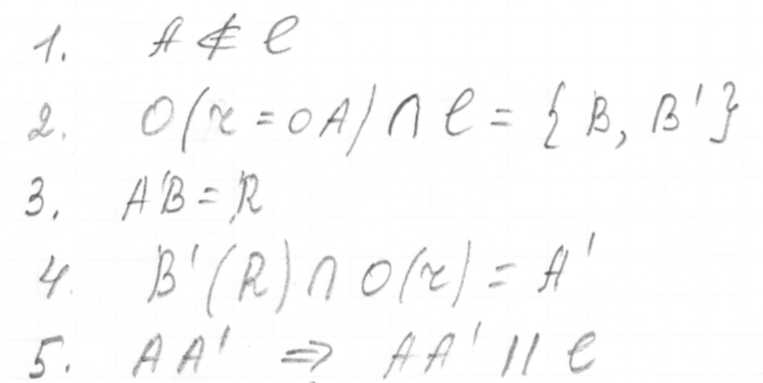 1. A ∉ l
2. O(r = OA) ∩ l = {B, B'}
3. AB = R
4. B'(R) ∩ O(r) = A'
5. AA' ⇒ AA' || l